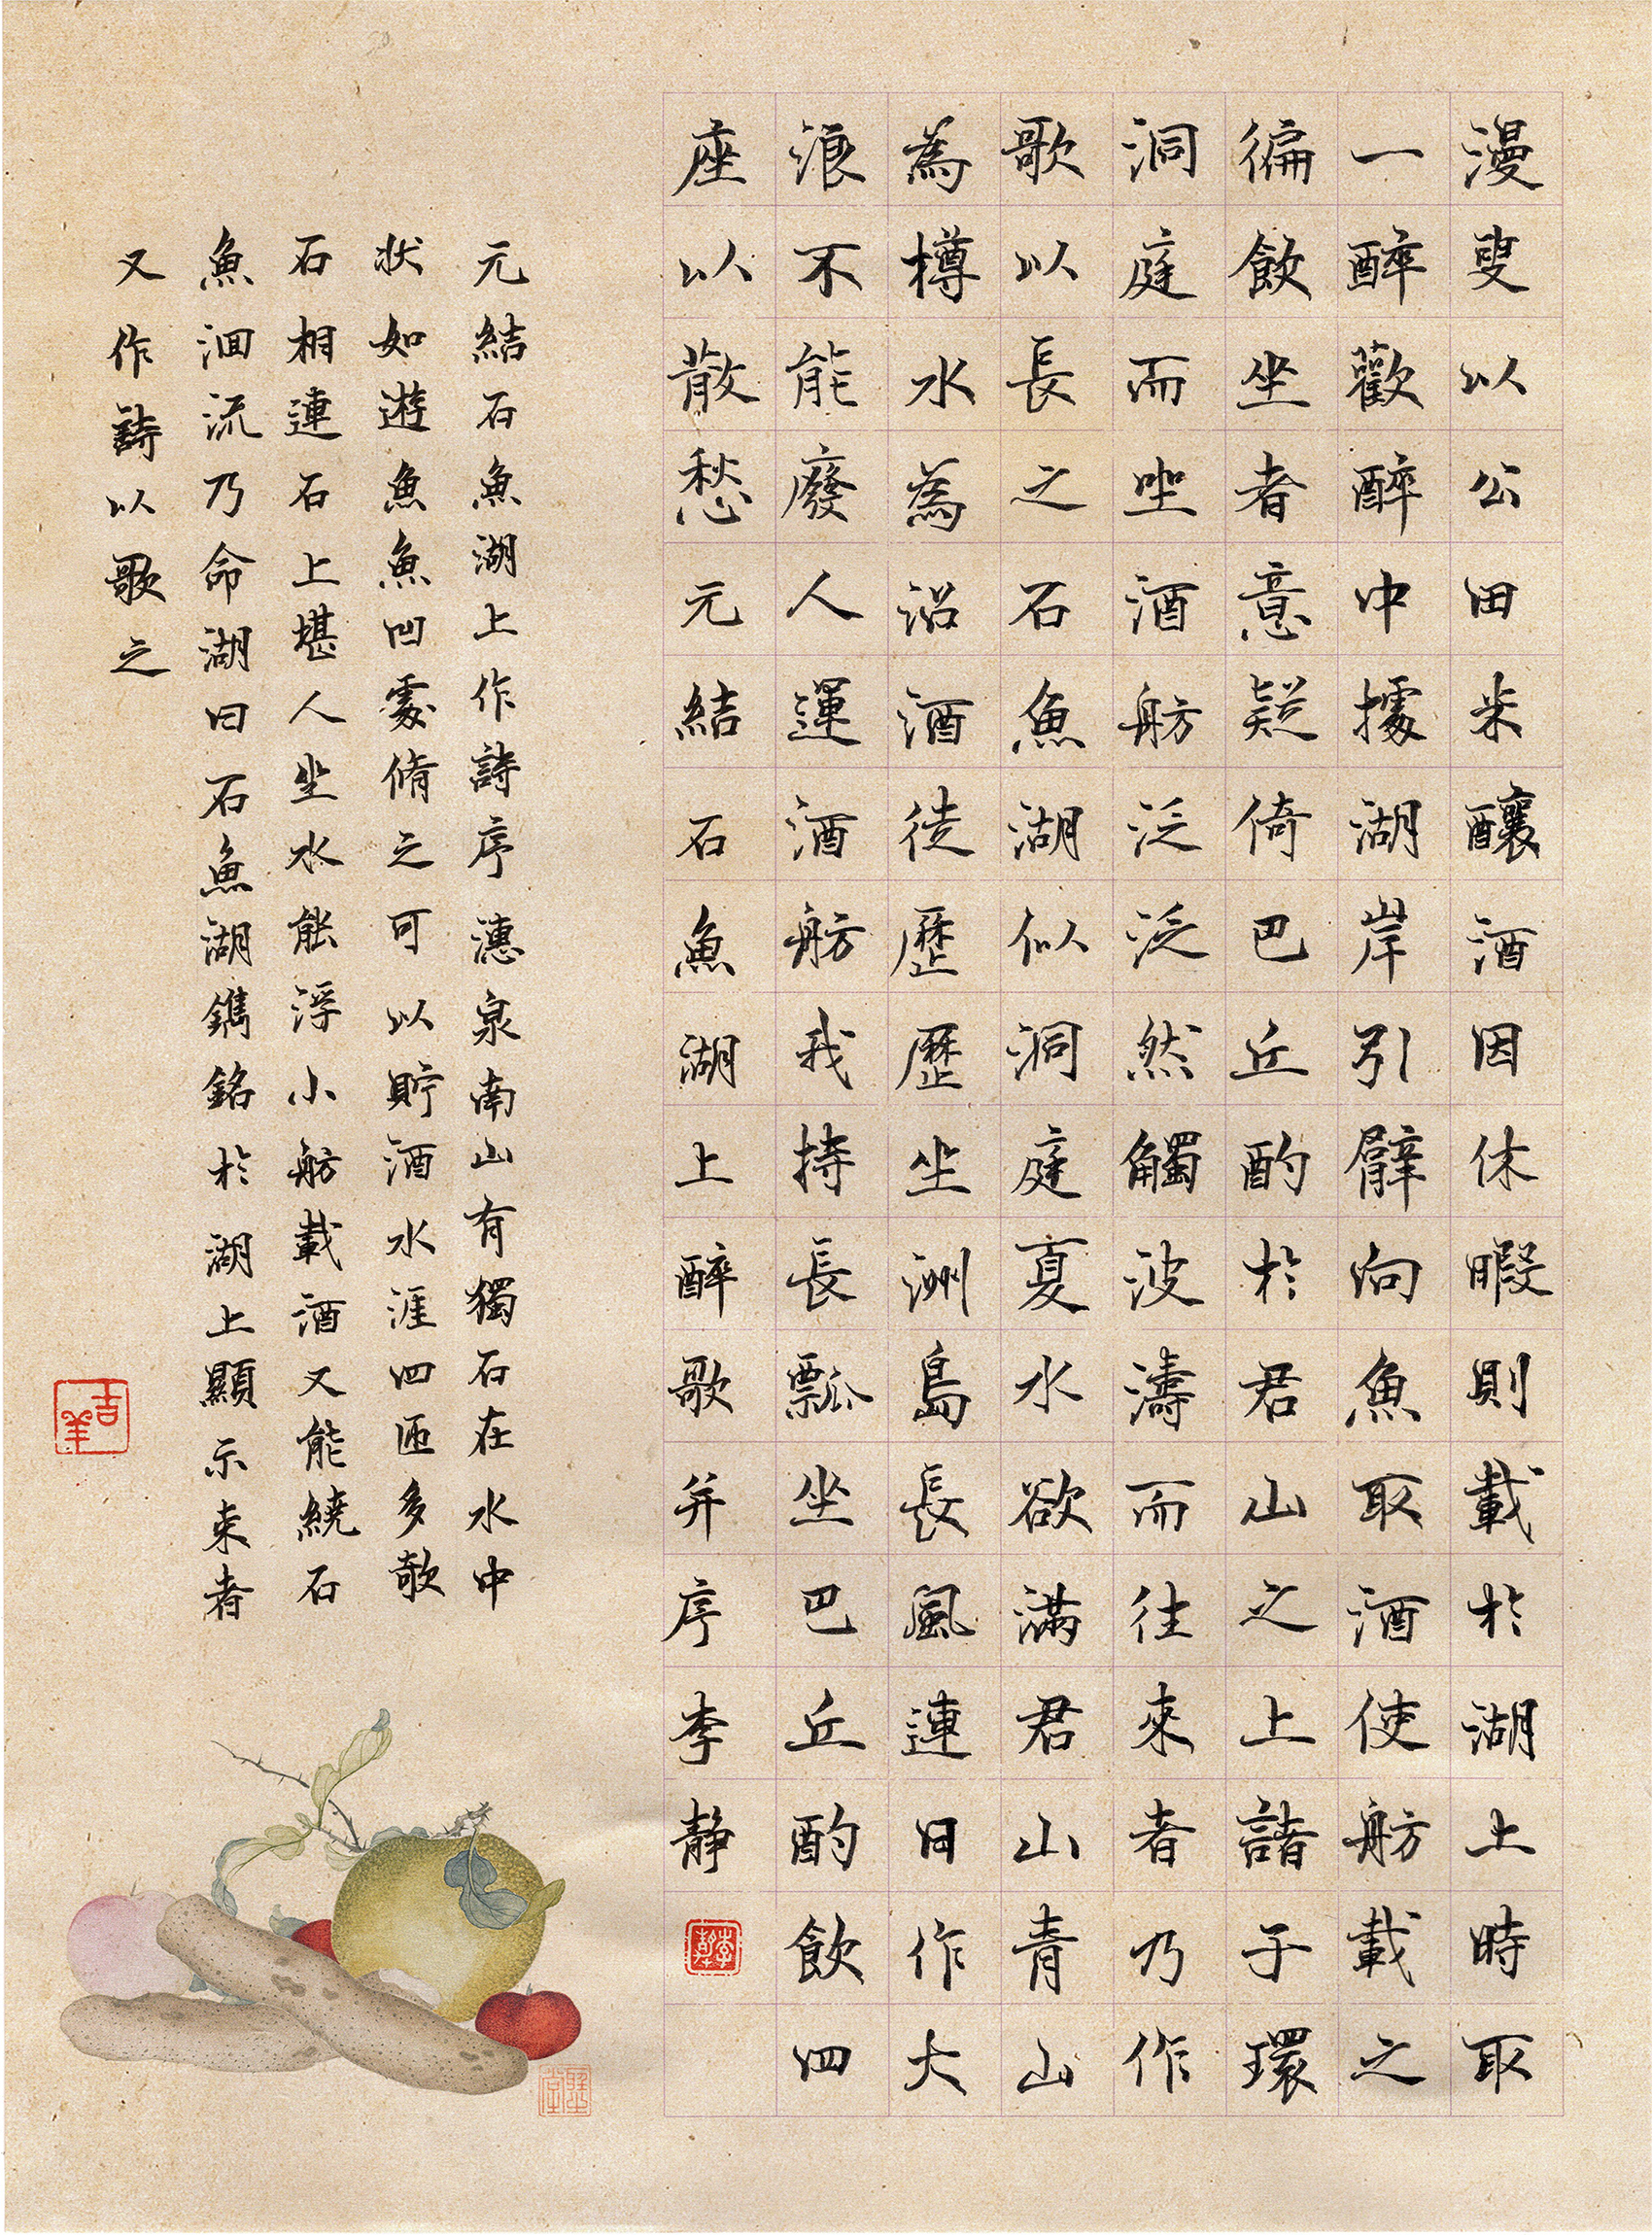 漫叟以公田米釀酒因休暇則載於湖上時取
一醉歡醉中據湖岸引臂向魚取酒使舫載之
徧飲坐者意疑倚巴丘酌於君山之上諸子環
洞庭而坐酒舫泛泛然觸波濤而往來者乃作
歌以長之石魚湖似洞庭夏水欲滿君山青山
為樽水為沼酒徒歷歷坐洲島長風連日作大
浪不能廢人運酒舫我持長瓢坐巴丘酌飲四
座以散愁元結石魚湖上醉歌并序李靜
元結石魚湖上作詩序潓泉南山有獨石在水中
狀如遊魚魚凹處脩之可以貯酒水涯四匝多欹
石相連石上堪人坐水能浮小舫載酒又能繞石
魚洄流乃命湖曰石魚湖鐫銘於湖上顯示來者
又作詩以歌之
吉羊